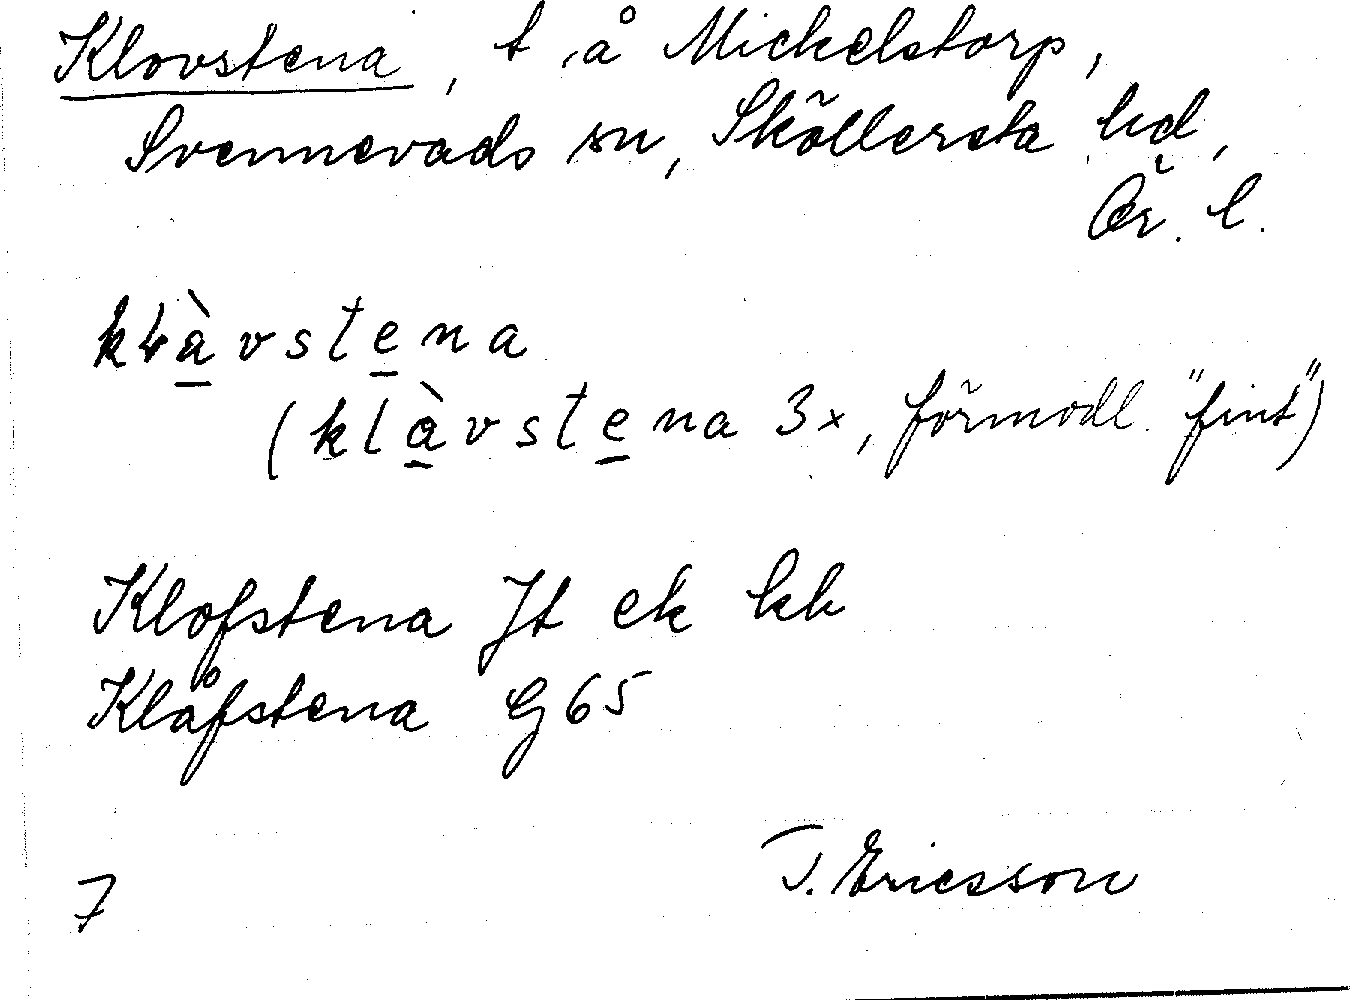 Klovstena, t å Mickelstorp,
Svennevads sn, Sköllersta hd,
Ör. l.
kɬàvstena
(klàvstena 3x, förmodl. "fint")
Klofstena Jt ek hk
Klåfstena G65
7
T. Ericsson